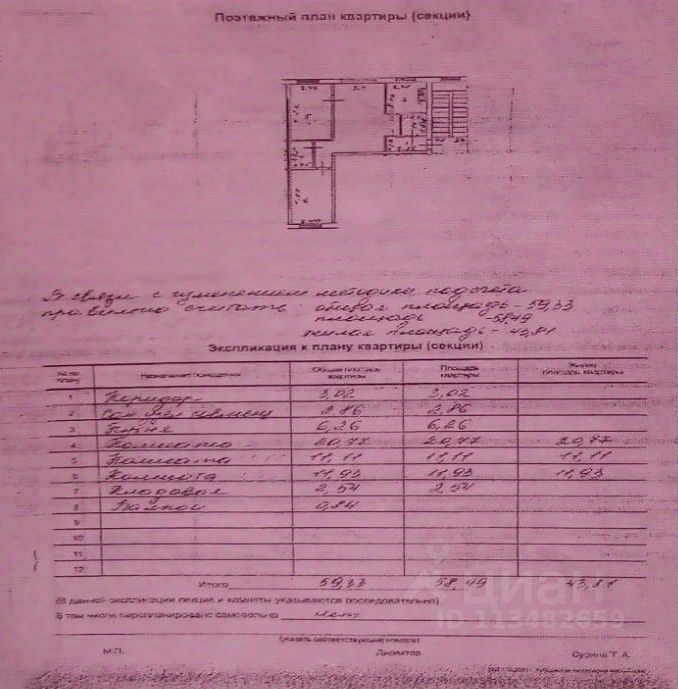 Поэтажный план квартиры (секции)
В связи с изменением методики подсчета
правильно считать: общая площадь - 59,33
площадь - 58,49
жилая площадь - 43,81
Экспликация к плану квартиры (секции)
№№ по плану Назначение помещения Общая площадь квартиры Площадь квартиры Жилая площадь квартиры
1 Коридор 3,02 3,02
2 2,86 2,86
3 Кухня 6,26 6,26
4 Комната 20,77 20,77 20,77
5 Комната 11,11 11,11 11,11
6 Комната 11,93 11,93 11,93
7 Кладовая 2,54 2,54
8 Балкон 0,84
9
10
11
12
Итого 59,33 58,49 43,81
(В данной экспликации секции и комнаты указываются последовательно)
В том числе перепланировано самовольно нет
(указать соответствующие номера)
М.П. Директор Сурина Т. А.
циан
ID 113482659